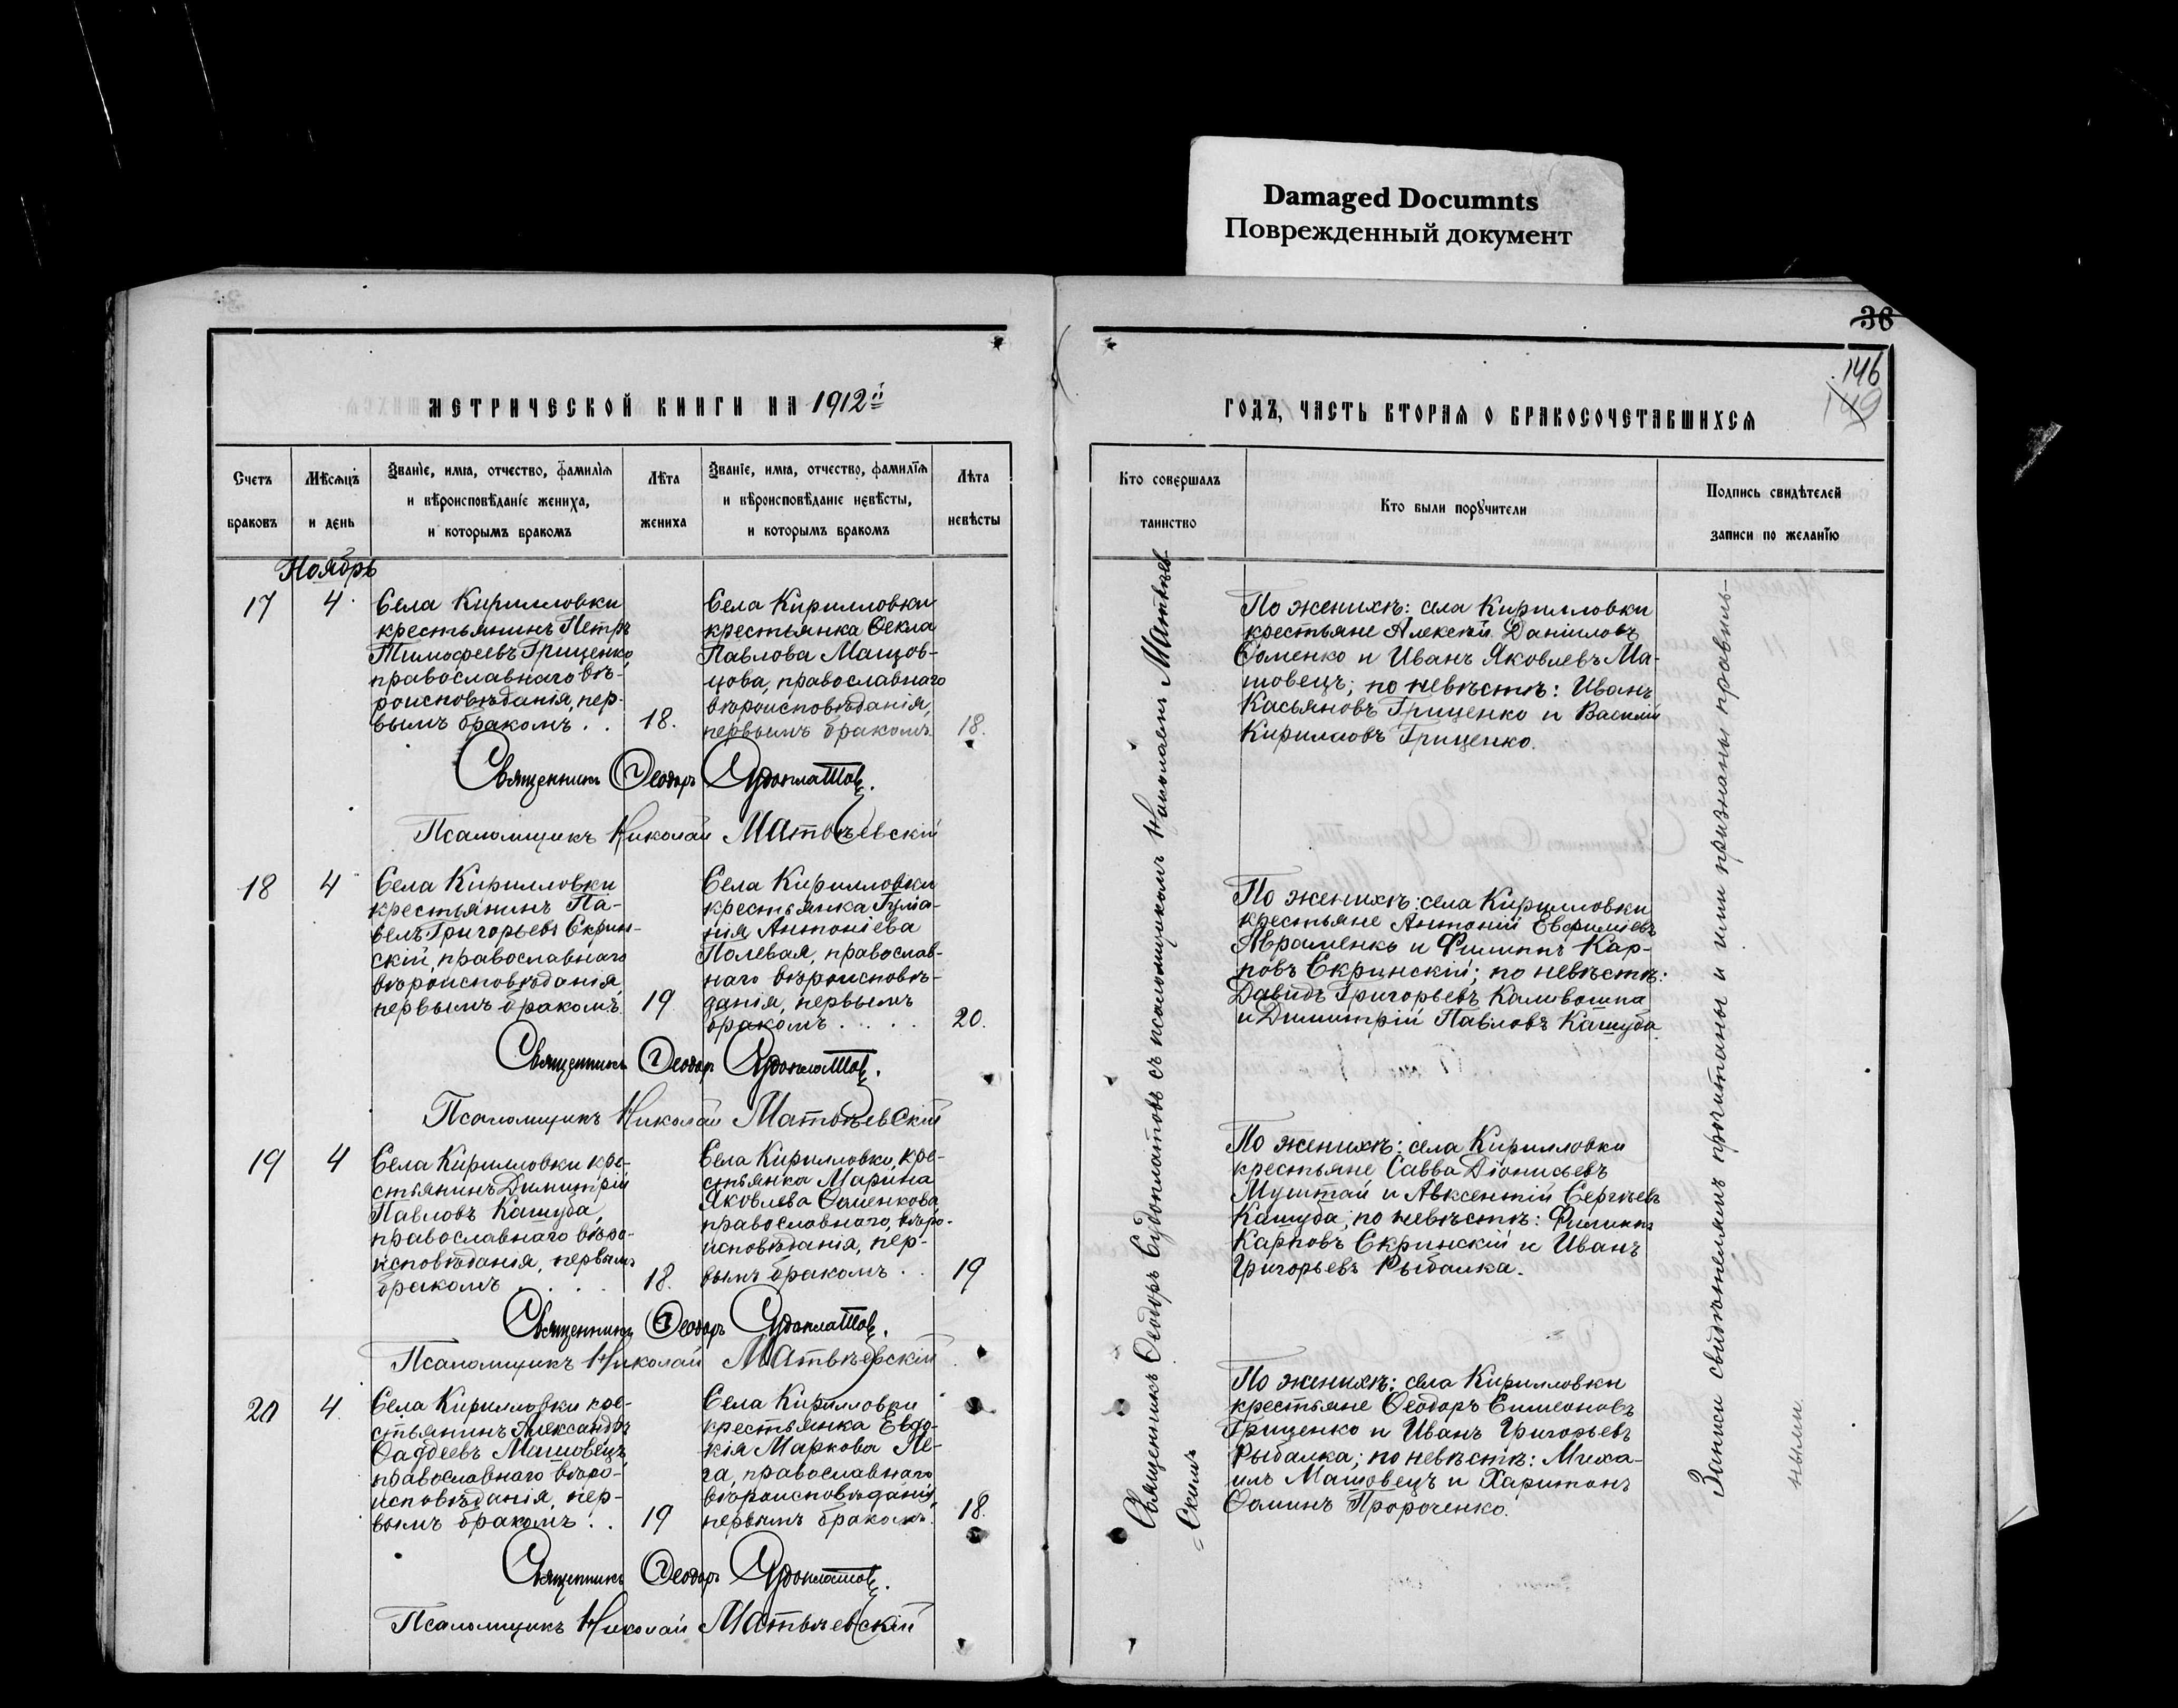 Damaged Documnts
Поврежденный документ
36
146
149
МЕТРИЧЕСКОЙ КНИГИ НА 1912й
ГОДЪ, ЧАСТЬ ВТОРАЯ О БРАКОСОЧЕТАВШИХСЯ
Счетъ
браковъ
Мѣсяцъ
и день
Званіе, имя, отчество, фамилія
и вѣроисповѣданіе жениха,
и которымъ бракомъ
Лѣта
жениха
Званіе, имя, отчество, фамилія
и вѣроисповѣданіе невѣсты,
и которымъ бракомъ
Лѣта
невѣсты
Кто совершалъ
таинство
Кто были поручители
Подпись свидѣтелей
записи по желанію
Ноябрь
17
4
Села Кирилловки
крестьянинъ Петръ
Тимофеевъ Гриценко,
православнаго вѣ-
роисповѣданія, пер-
вымъ бракомъ . .
18.
Села Кирилловки
крестьянка Ѳекла
Павлова Машов-
цова, православнаго
вѣроисповѣданія,
первымъ бракомъ.
18.
По женихѣ: села Кирилловки
крестьяне Алексѣй Даніиловъ
Ѳоменко и Иванъ Яковлевъ Ма-
шовецъ; по невѣстѣ: Иванъ
Касьяновъ Гриценко и Василій
Кирилловъ Гриценко.
Священникъ Ѳеодоръ Судоплатовъ.
Псаломщикъ Николай Матвѣевскій
18
4
Села Кирилловки
крестьянинъ Па-
велъ Григорьевъ Скрин-
скій, православнаго
вѣроисповѣданія,
первымъ бракомъ.
19
Села Кирилловки
крестьянка
нія Антоніева
Полевая, православ-
наго вѣроисповѣ-
данія, первымъ
бракомъ . . . .
20.
По женихѣ: села Кирилловки
крестьяне Антоній Евфиміевъ
Авраменко и Филиппъ Кар-
повъ Скринскій; по невѣстѣ:
Давидъ Григорьевъ Каливошка
и Димитрій Павловъ Кашуба.
Священникъ Ѳеодоръ Судоплатовъ.
Псаломщикъ Николай Матвѣевскій
19
4
Села Кирилловки кре-
стьянинъ Димитрій
Павловъ Кашуба,
православнаго вѣро-
исповѣданія, первымъ
бракомъ . . . .
18.
Села Кирилловки, кре-
стьянка Марина
Яковлева Ѳоменкова,
православнаго, вѣро-
исповѣданія, пер-
вымъ бракомъ . .
19
По женихѣ: села Кирилловки
крестьяне Савва Діонисьевъ
Муштай и Авксентій Сергѣевъ
Кашуба, по невѣстѣ: Филиппъ
Карповъ Скринскій и Иванъ
Григорьевъ Рыбалка.
Священникъ Ѳеодоръ Судоплатовъ.
Псаломщикъ Николай Матвѣевскій
20
4.
Села Кирилловки кре-
стьянинъ Александръ
Ѳаддеевъ Машовецъ,
православнаго вѣро-
исповѣданія, пер-
вымъ бракомъ . .
19
Села Кирилловки
крестьянка Евдо-
кія Маркова Ле-
га, православнаго
вѣроисповѣданія,
первымъ бракомъ.
18.
По женихѣ: села Кирилловки
крестьяне Ѳеодоръ Симеоновъ
Гриценко и Иванъ Григорьевъ
Рыбалка; по невѣстѣ: Миха-
илъ Машовецъ и Харитонъ
Ѳоминъ Пророченко.
Священникъ Ѳеодоръ Судоплатовъ.
Псаломщикъ Николай Матвѣевскій
Священникъ Ѳеодоръ Судоплатовъ съ псаломщикомъ Николаемъ Матвѣев-
-скимъ
Записи свидѣтелямъ прочитаны и ими признаны правиль-
ными